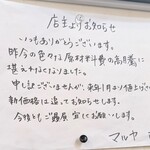 店主よりお知らせ
いつもありがとうございます。
昨今の色々なる原材料費の高騰に
堪えれなくなりました。
申し訳ございませんが、来年1月より値上げ
新価格は追ってお知らせします。
今後ともご贔屓 宜しくお願いします。
マルヤ